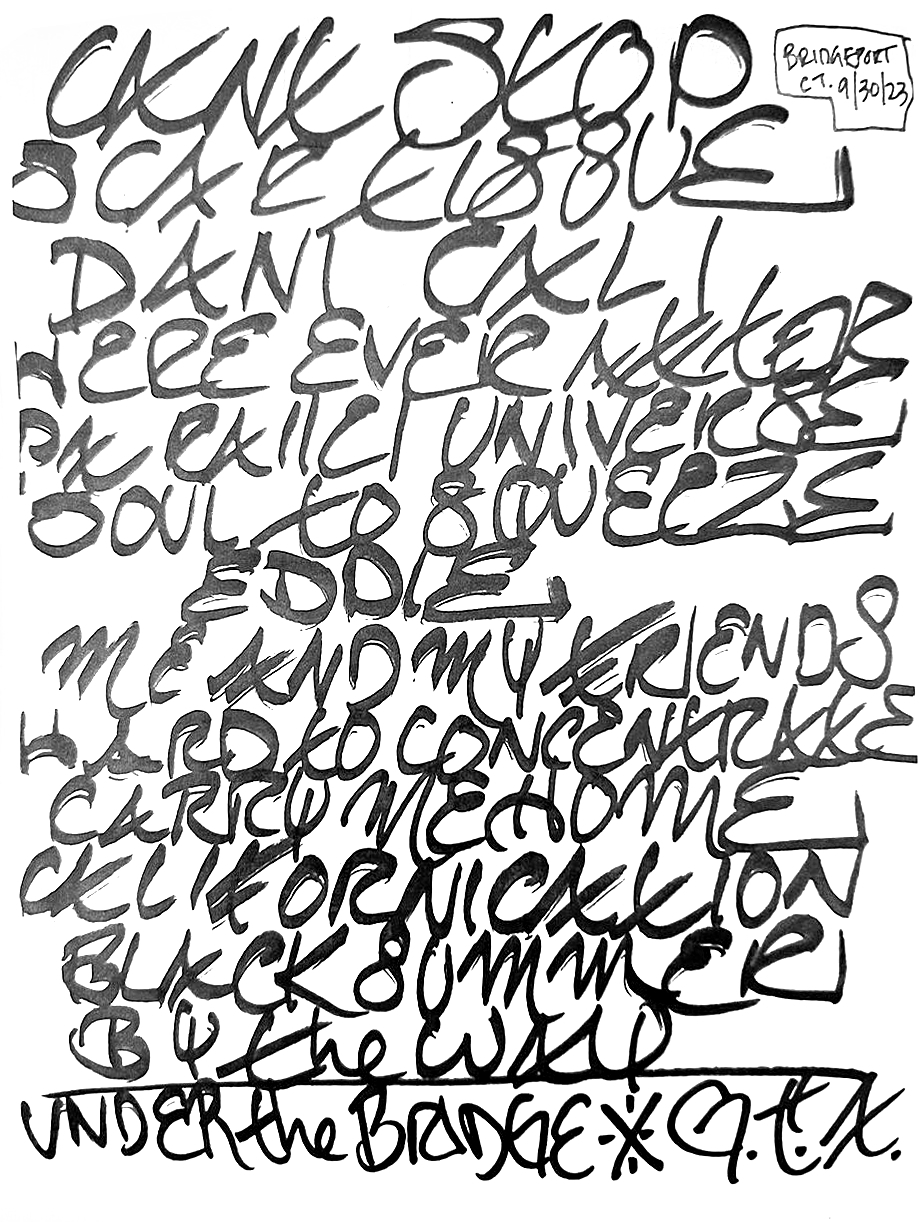 CANT STOP
BRIDGEPORT
CT. 9/30/23
SCAR TISSUE
DANI CALI
HERE EVER AFTER
PARAllEl UNIVERSE
SOUL to SQUEEZE
EDDIE
ME AND MY FRIENDS
HARD tO CONCENTRATE
CARRY ME HOME
CALIFORNICATION
BLACK SUMMER
BY the WAY
UNDER the BRIDGE * G.t.A.